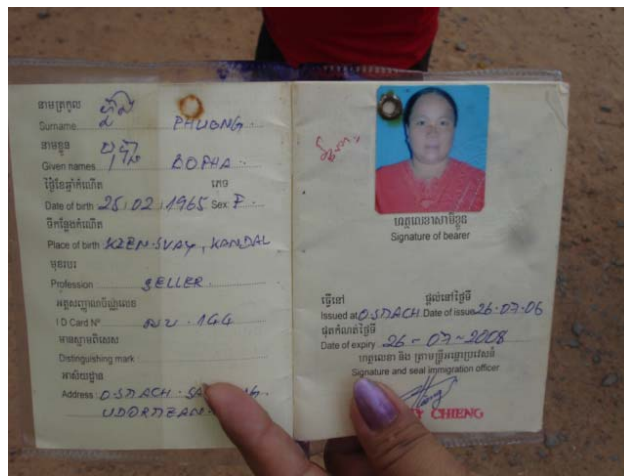 នាមត្រកូល
Surname PHUONG
នាមខ្លួន
Given names BOPHA
ថ្ងៃខែឆ្នាំកំណើត ភេទ
Date of birth 25/02/1965 Sex F
ទីកន្លែងកំណើត
Place of birth KIEN-SVAY, KANDAL
មុខរបរ
Profession SELLER
អត្តសញ្ញាណប័ណ្ណលេខ
I D Card Nº 144
មានស្នាមពិសេស
Distinguishing mark
អាស័យដ្ឋាន
Address O.SMACH
ហត្ថលេខាសាមីខ្លួន
Signature of bearer
ធ្វើនៅ ផ្តល់នៅថ្ងៃទី
Issued at O.SMACH Date of issue 26-07-06
ផុតកំណត់ថ្ងៃទី
Date of expiry 26-07-2008
ហត្ថលេខា និង ត្រាមន្ត្រីអន្តោប្រវេសន៍
Signature and seal immigration officer
CHIENG